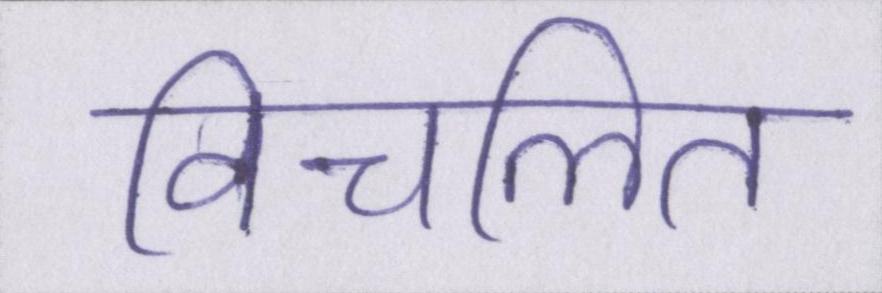 विचलित